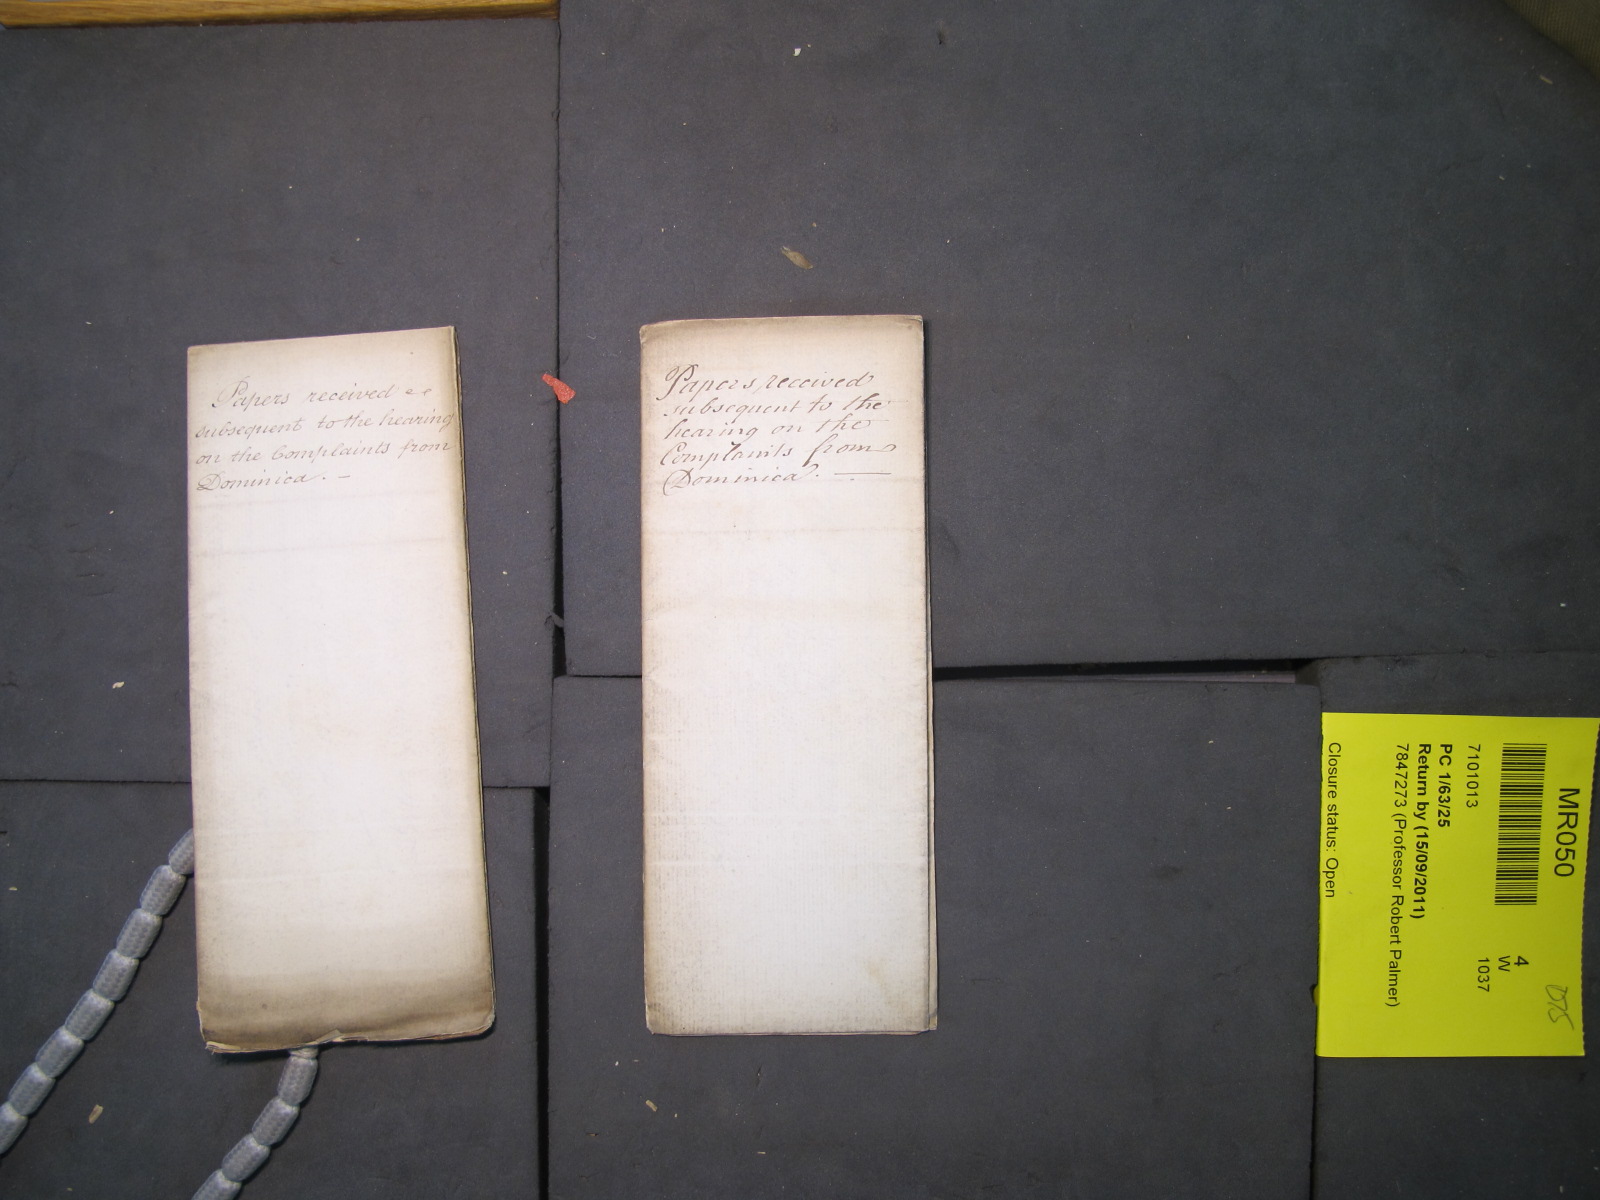 Papers received
subsequent to the hearing
on the Complaints from
Dominica. —
Papers received
subsequent to the
hearing on the
Complaints from
Dominica. —
MR050
7101013
4
W
1037
PC 1/63/25
Return by (15/09/2011)
7847273 (Professor Robert Palmer)
Closure status: Open